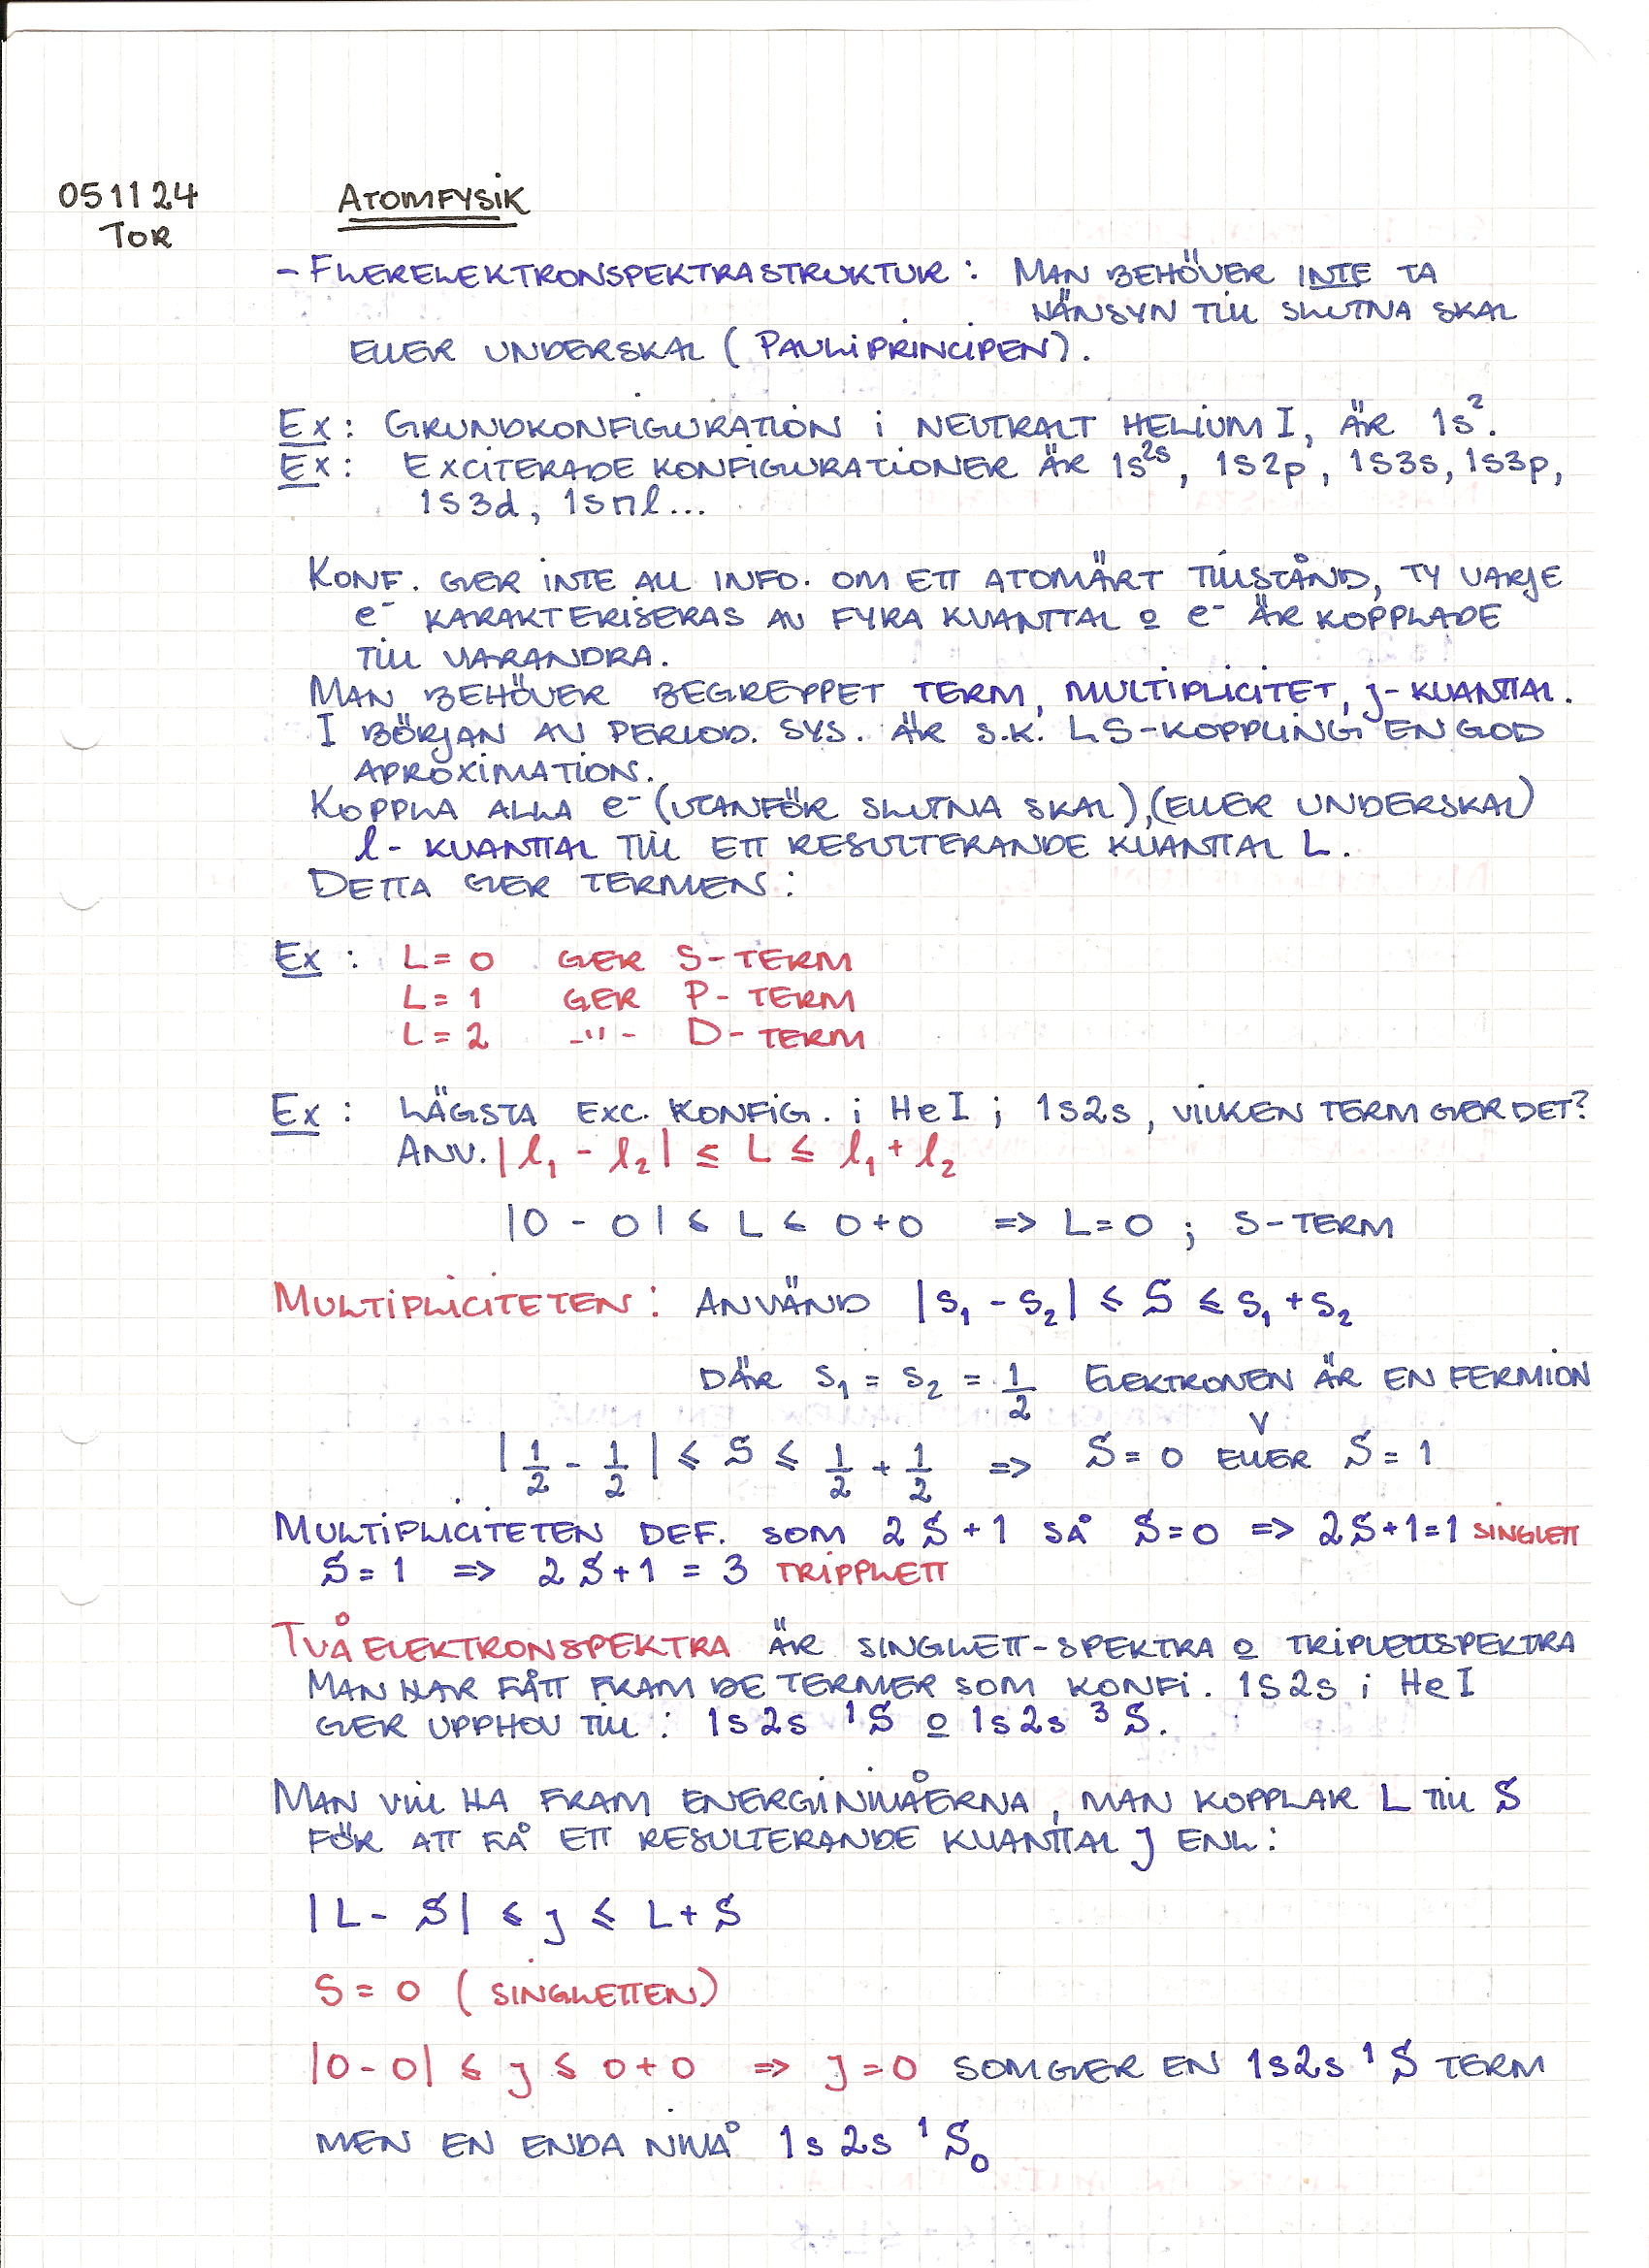 051124
TOR
ATOMFYSIK
- FLERELEKTRONSPEKTRASTRUKTUR: MAN BEHÖVER INTE TA
HÄNSYN TILL SLUTNA SKAL
ELLER UNDERSKAL (PAULIPRINCIPEN).
EX: GRUNDKONFIGURATION I NEUTRALT HELIUM I, ÄR 1s².
EX: EXCITERADE KONFIGURATIONER ÄR 1s2s, 1s2p, 1s3s, 1s3p,
1s3d, 1snl...
KONF. GER INTE ALL INFO. OM ETT ATOMÄRT TILLSTÅND, TY VARJE
e⁻ KARAKTERISERAS AV FYRA KVANTTAL o e⁻ ÄR KOPPLADE
TILL VARANDRA.
MAN BEHÖVER BEGREPPET TERM, MULTIPLICITET, J-KVANTTAL.
I BÖRJAN AV PERIOD. SYS. ÄR S.K. LS-KOPPLING EN GOD
APROXIMATION.
KOPPLA ALLA e⁻ (UTANFÖR SLUTNA SKAL), (ELLER UNDERSKAL)
l - KVANTTAL TILL ETT RESULTERANDE KVANTTAL L.
DETTA GER TERMEN:
EX: L = 0 GER S-TERM
L = 1 GER P-TERM
L = 2 -"- D-TERM
EX: LÄGSTA EXC. KONFIG. I He I; 1s2s, VILKEN TERM GER DET?
ANV. |l₁ - l₂| ≤ L ≤ l₁ + l₂
|0 - 0| ≤ L ≤ 0+0 => L=0 ; S-TERM
MULTIPLICITETEN: ANVÄND |s₁ - s₂| ≤ S ≤ s₁ + s₂
DÄR s₁ = s₂ = 1/2 ELEKTRONEN ÄR EN FERMION
|1/2 - 1/2| ≤ S ≤ 1/2 + 1/2 => S = 0 ELLER S = 1
MULTIPLICITETEN DEF. SOM 2S+1 SÅ S=0 => 2S+1=1 SINGLETT
S = 1 => 2S+1 = 3 TRIPPLETT
TVÅELEKTRONSPEKTRA ÄR SINGLETT-SPEKTRA o TRIPLETTSPEKTRA
MAN HAR FÅTT FRAM DE TERMER SOM KONFI. 1s2s I He I
GER UPPHOV TILL: 1s2s ¹S o 1s2s ³S.
MAN VILL HA FRAM ENERGINIVÅERNA, MAN KOPPLAR L TILL S
FÖR ATT FÅ ETT RESULTERANDE KVANTTAL J ENL:
|L - S| ≤ J ≤ L + S
S = 0 (SINGLETTEN)
|0 - 0| ≤ J ≤ 0+0 => J = 0 SOM GER EN 1s2s ¹S TERM
MEN EN ENDA NIVÅ 1s2s ¹S₀